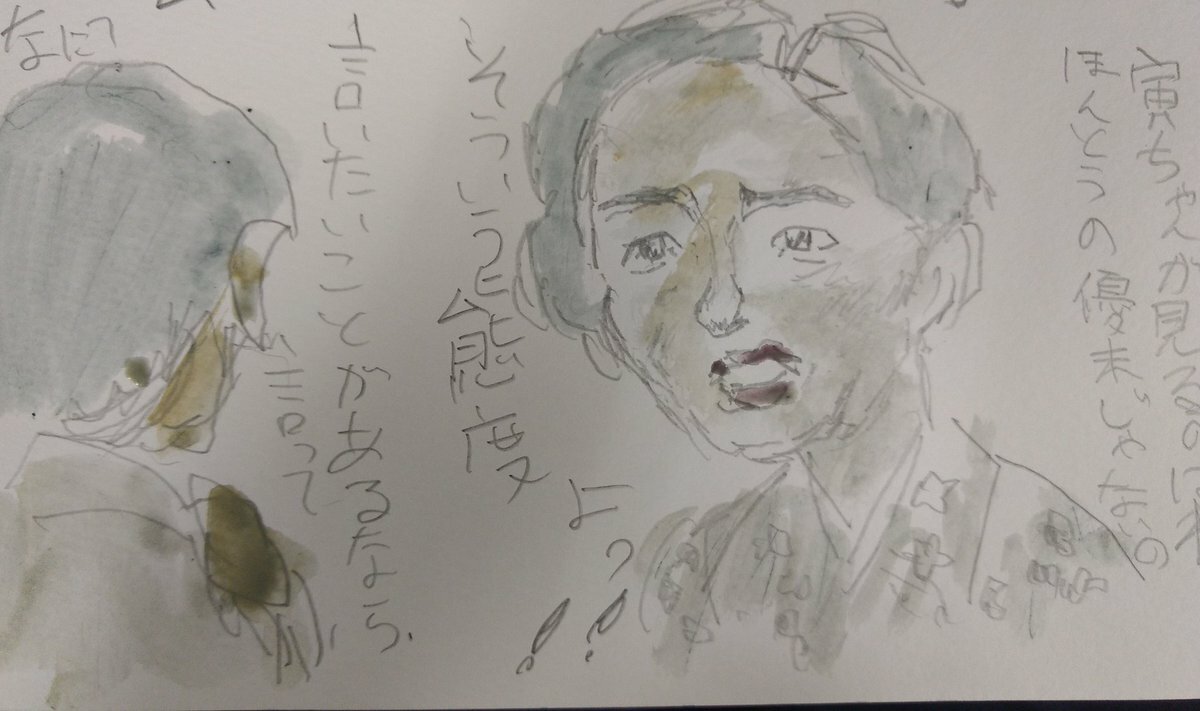 寅ちゃんが見てるのは
ほんとうの優未じゃないの
そういう態度
よっ!!
言いたいことがあるなら、
言って
なに?